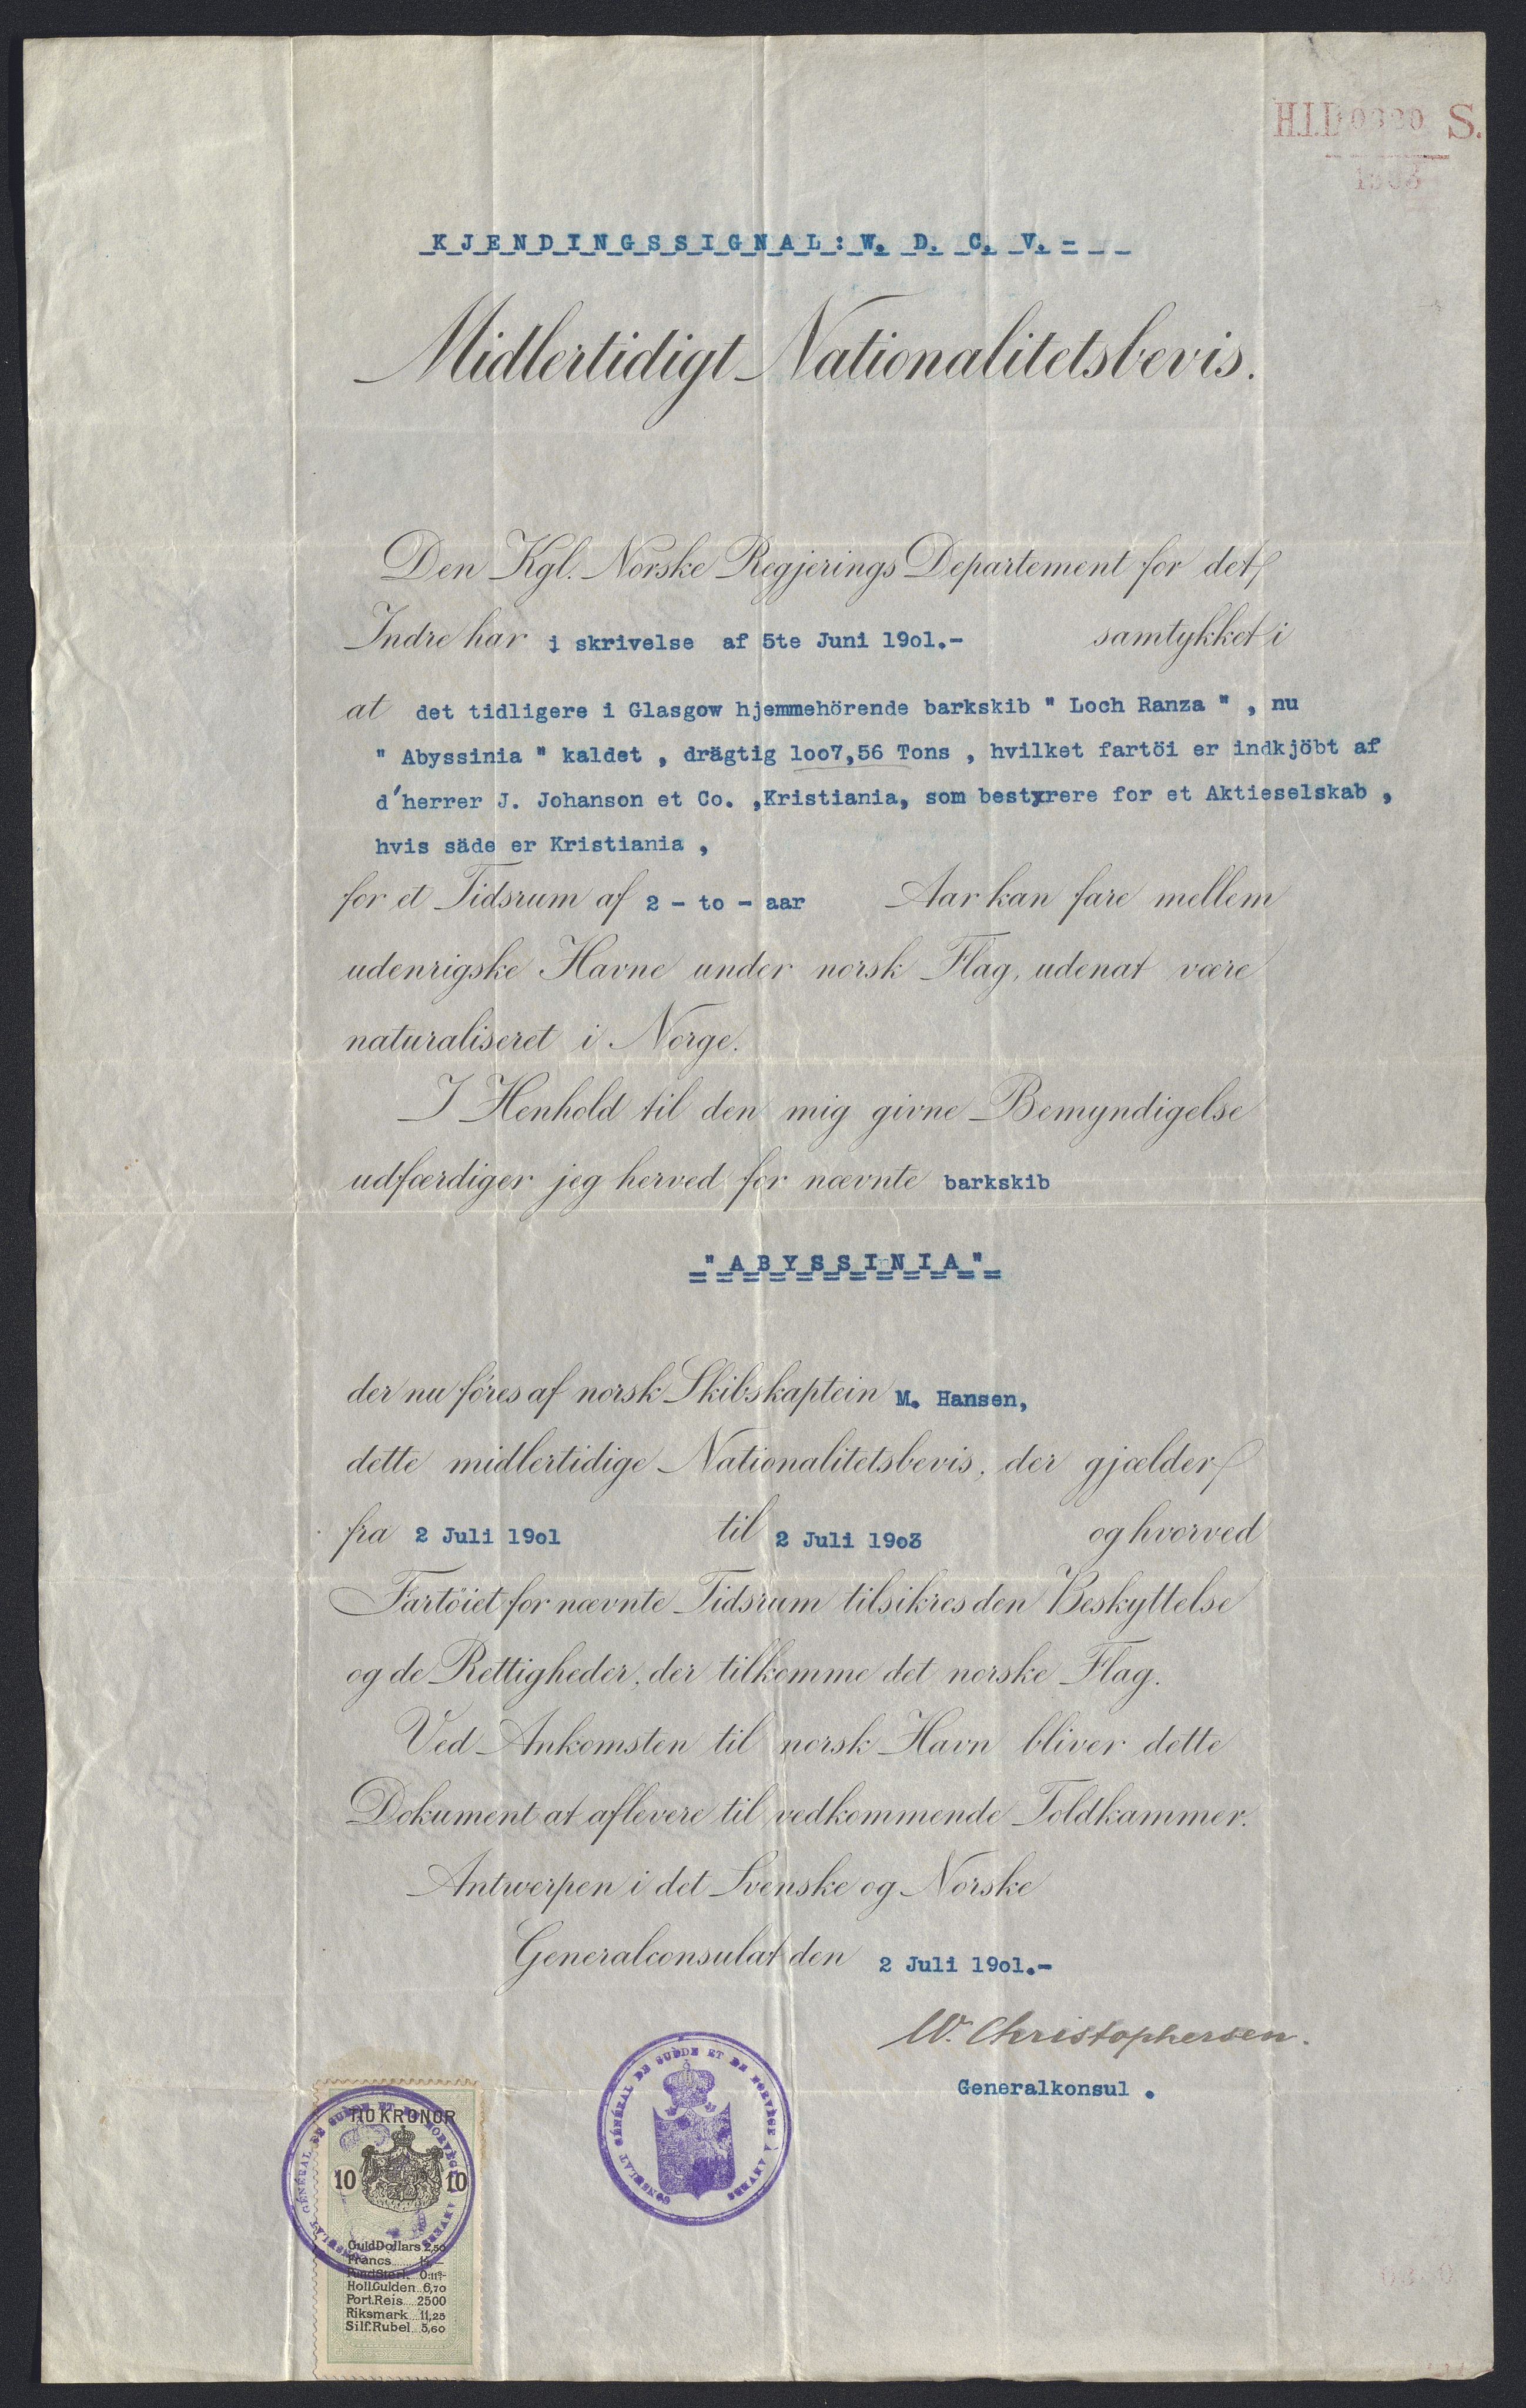 H.I.D 0380 S.
1903
KJENDINGSSIGNAL: W. D. C. V. =
Midlertidigt Nationalitetsbevis.
Den Kgl. Norske Regjerings Departement for det
Indre har i skrivelse af 5te Juni 19o1.- samtykket i
at det tidligere i Glasgow hjemmehörende barkskib " Loch Ranza " , nu
" Abyssinia " kaldet , drägtig loo7,56 Tons , hvilket fartöi er indkjöbt af
d'herrer J. Johanson et Co. ,Kristiania, som bestyrere for et Aktieselskab ,
hvis säde er Kristiania ,
for et Tidsrum af 2 - to - aar Aar kan fare mellem
udenrigske Havne under norsk Flag, udenat være
naturaliseret i Norge.
I Henhold til den mig givne Bemyndigelse
udfærdiger jeg herved for nævnte barkskib
"ABYSSINIA"
der nu föres af norsk Skibskaptein M. Hansen,
dette midlertidige Nationalitetsbevis, der gjælder
fra 2 Juli 19o1 til 2 Juli 19o3 og hvorved
Fartöiet for nævnte Tidsrum tilsikres den Beskyttelse
og de Rettigheder, der tilkomme det norske Flag.
Ved Ankomsten til norsk Havn bliver dette
Dokument at aflevere til vedkommende Toldkammer.
Antwerpen i det Svenske og Norske
Generalconsulat den 2 Juli 19o1.-
W. Christophersen.
Generalkonsul .
CONSULAT GÉNÉRAL DE SUÈDE ET DE NORVÈGE À ANVERS
CONSULAT GÉNÉRAL DE SUÈDE ET DE NORVÈGE À ANVERS
TIO KRONOR
10 10
GuldDollars 2,50
Francs
Pund Sterl. 0:11
Holl.Gulden 6,70
Port.Reis 2500
Riksmark 11,25
Silf.Rubel 5,60